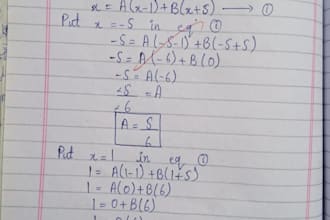 x = A(x-1)+B(x+5) → ①
Put x = -5 in eq ①
-5 = A(-5-1)+B(-5+5)
-5 = A(-6)+B(0)
-5 = A(-6)
-5 = A
-6
A = 5
6
Put x = 1 in eq ①
1 = A(1-1)+B(1+5)
1 = A(0)+B(6)
1 = 0+B(6)